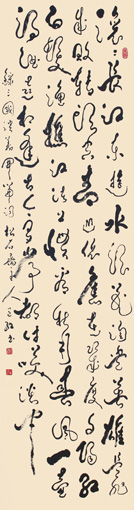 滚滚长江东逝水浪花淘尽英雄是非
成败转头空青山依旧在几度夕阳红
白发渔樵江渚上惯看秋月春风一壶
浊酒喜相逢古今多少事都付笑谈中
录三國演义开篇词 松石斋主人